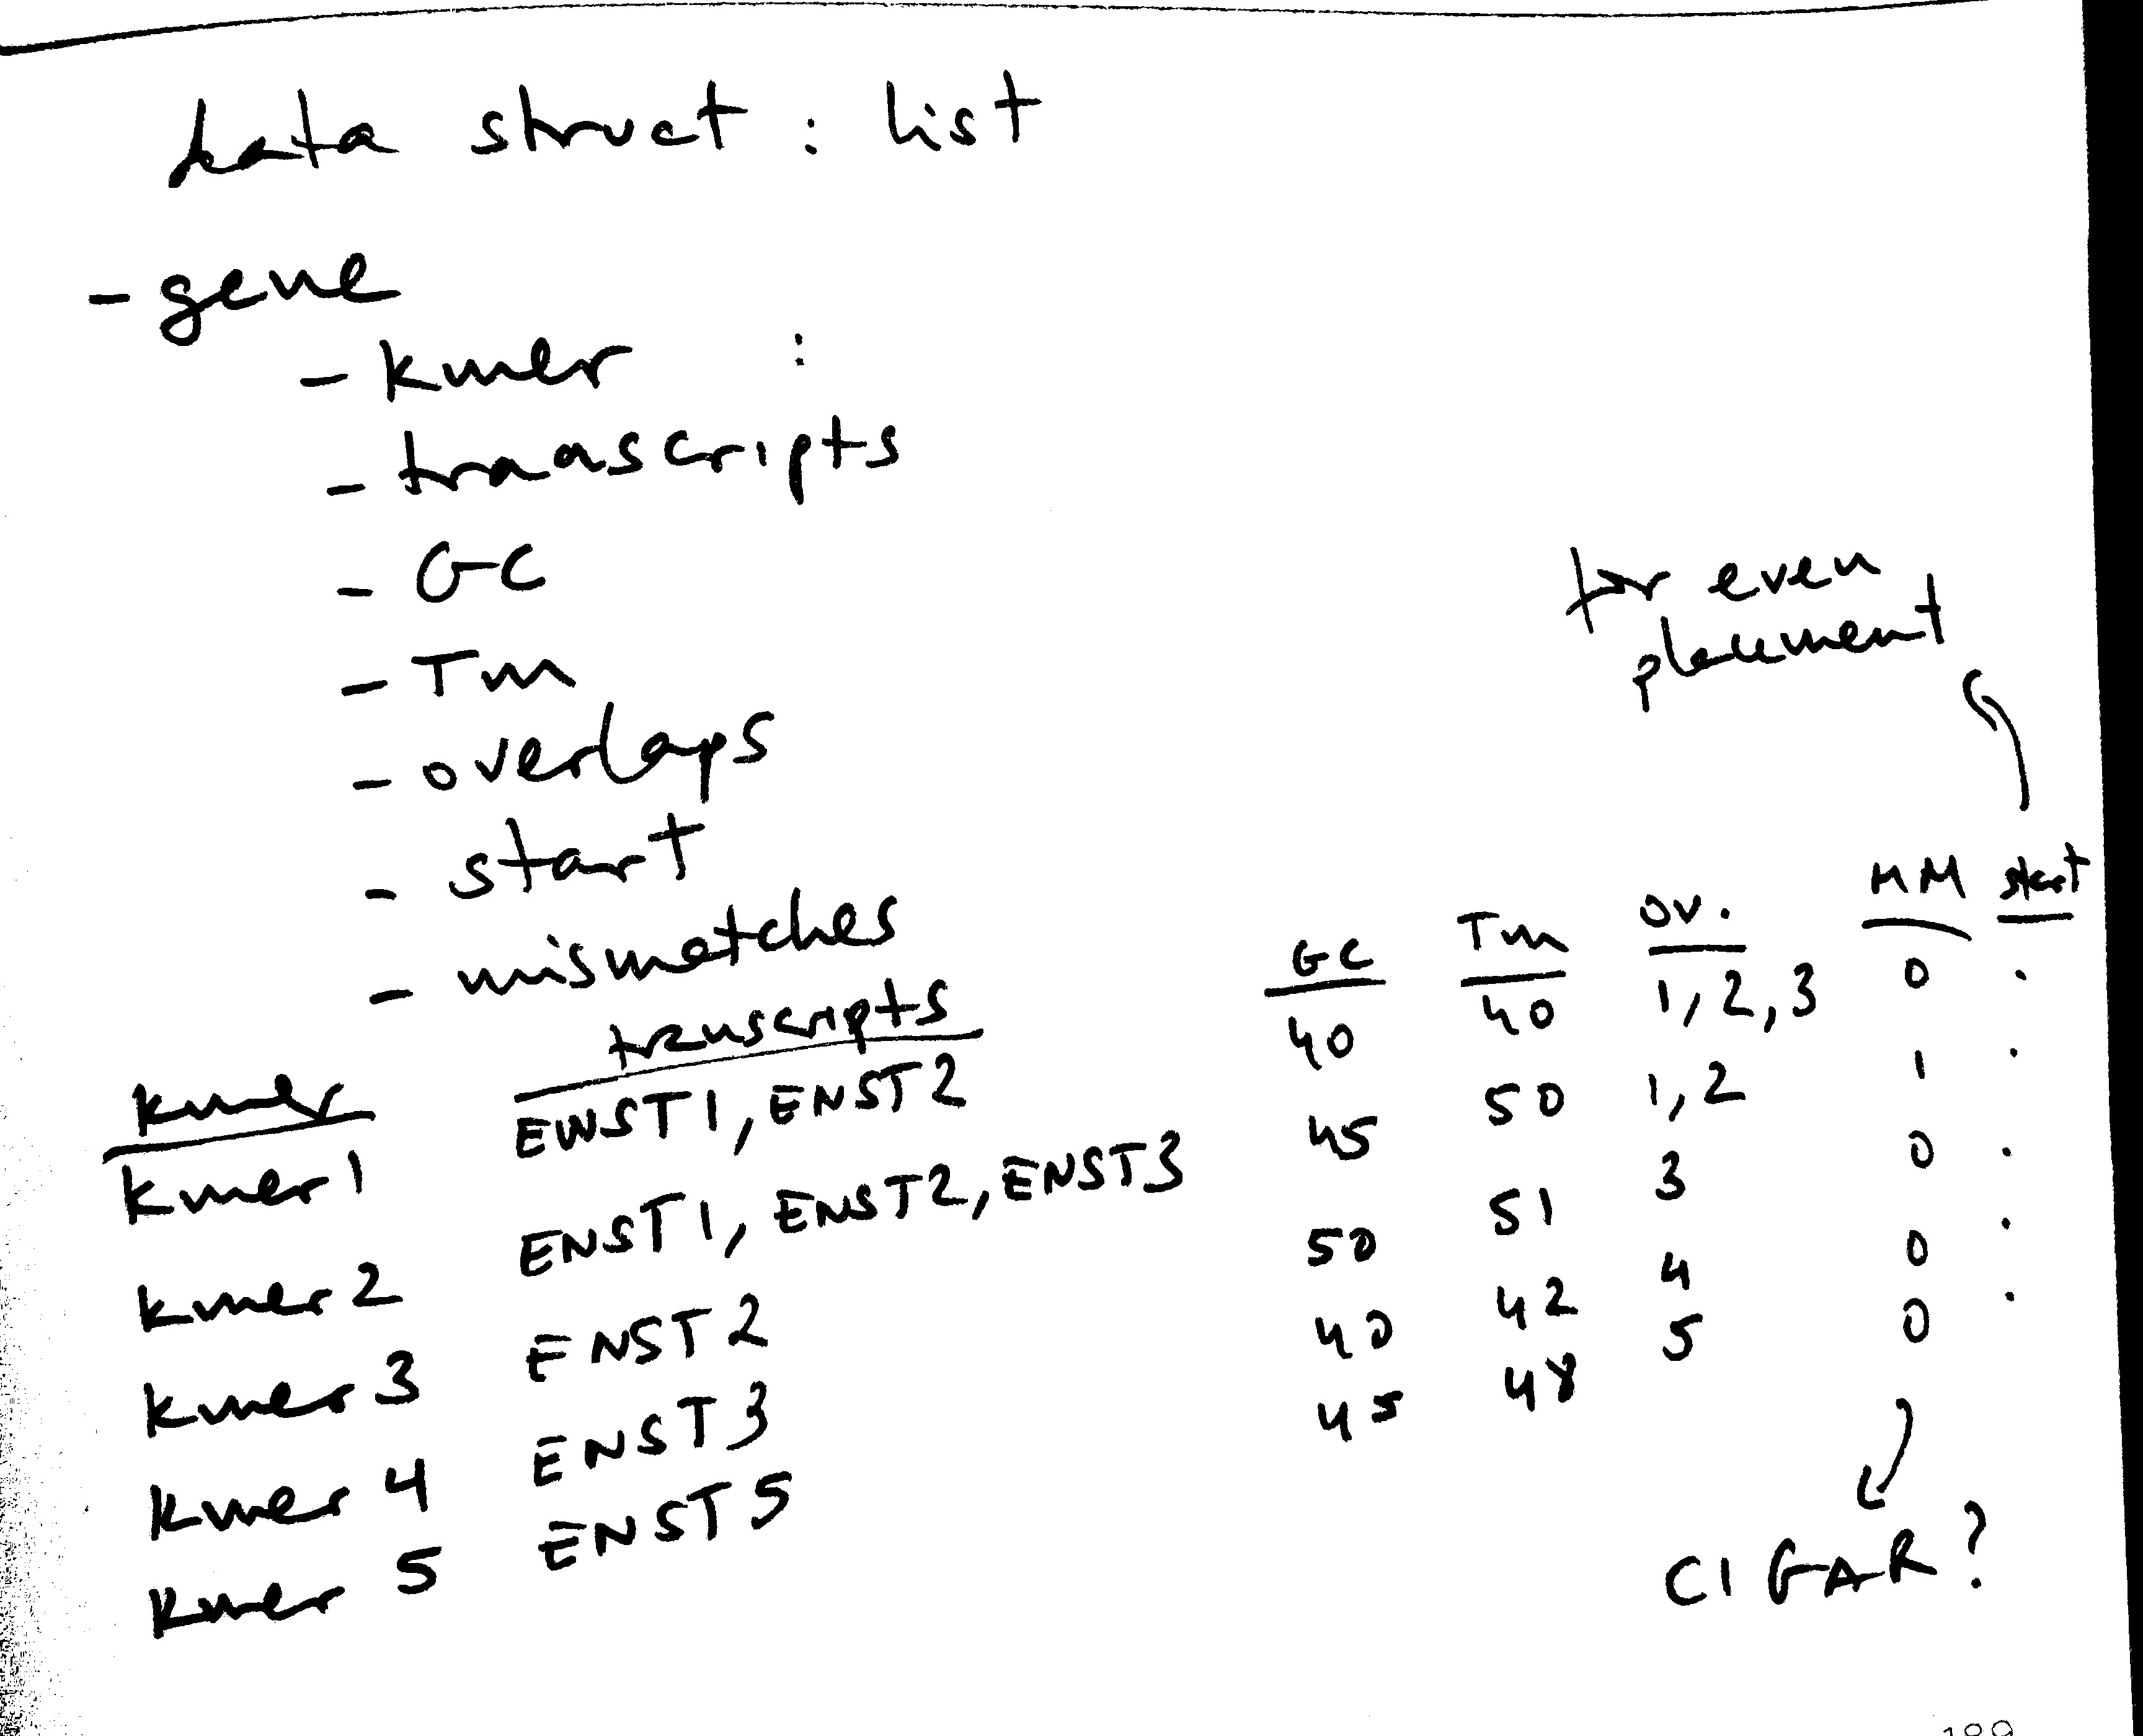 data struct : list
- gene
- kmer :
- transcripts
- GC
- Tm
- overlaps
- start
- mismatches
for even
placement
kmer transcripts GC Tm ov. MM start
kmer1 ENST1, ENST2 40 40 1,2,3 0 .
kmer2 ENST1, ENST2, ENST3 45 50 1,2 1 .
kmer3 ENST2 50 51 3 0 .
kmer 4 ENST3 40 42 4 0 .
kmer 5 ENST5 45 48 5 0 .
CIGAR?